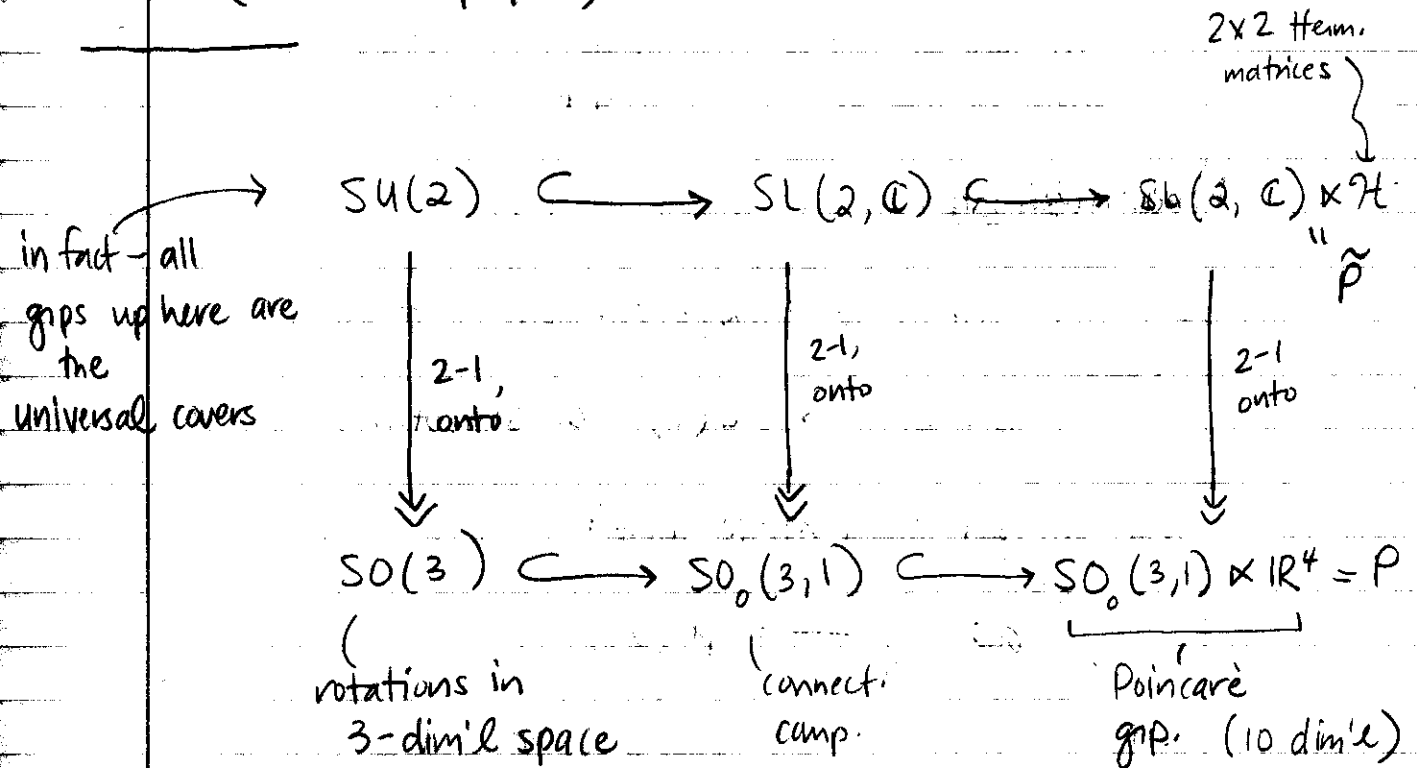 2x2 Herm.
matrices
SU(2) ⊂⟶ SL(2, ℂ) ⊂⟶ SL(2, ℂ) ⋉ ℋ
" P̃
in fact - all
grps up here are
the
universal covers
2-1,
onto
2-1,
onto
2-1
onto
SO(3) ⊂⟶ SO₀(3,1) ⊂⟶ SO₀(3,1) ⋉ ℝ⁴ = P
rotations in
3-dim'l space
connect.
comp.
Poincarè
grp. (10 dim'l)